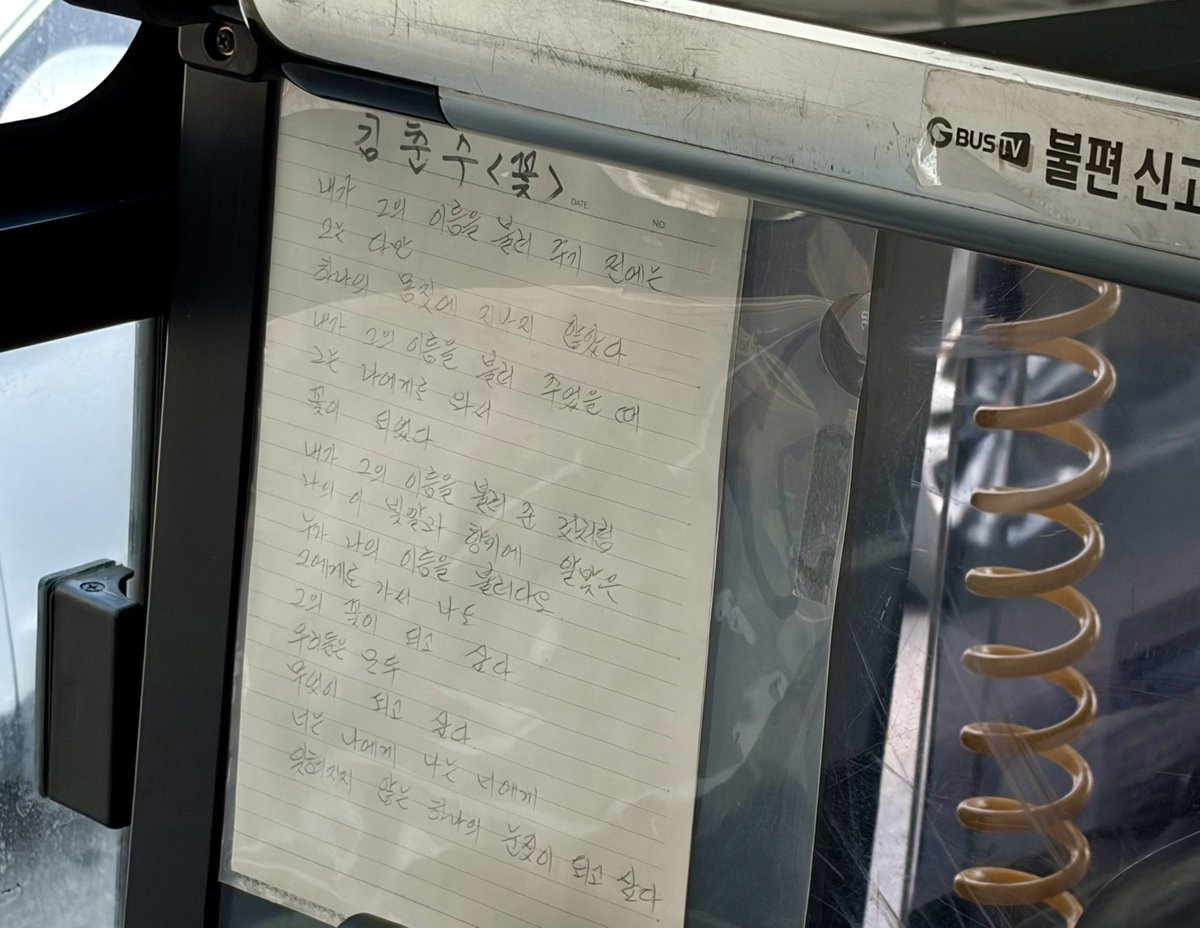 김춘수 <꽃>
DATE NO.
내가 그의 이름을 불러 주기 전에는
그는 다만
하나의 몸짓에 지나지 않았다
내가 그의 이름을 불러 주었을 때
그는 나에게로 와서
꽃이 되었다
내가 그의 이름을 불러 준 것처럼
나의 이 빛깔과 향기에 알맞은
누가 나의 이름을 불러다오
그에게로 가서 나도
그의 꽃이 되고 싶다
우리들은 모두
무엇이 되고 싶다
너는 나에게 나는 너에게
잊혀지지 않는 하나의 눈짓이 되고 싶다
G BUS TV 불편 신고